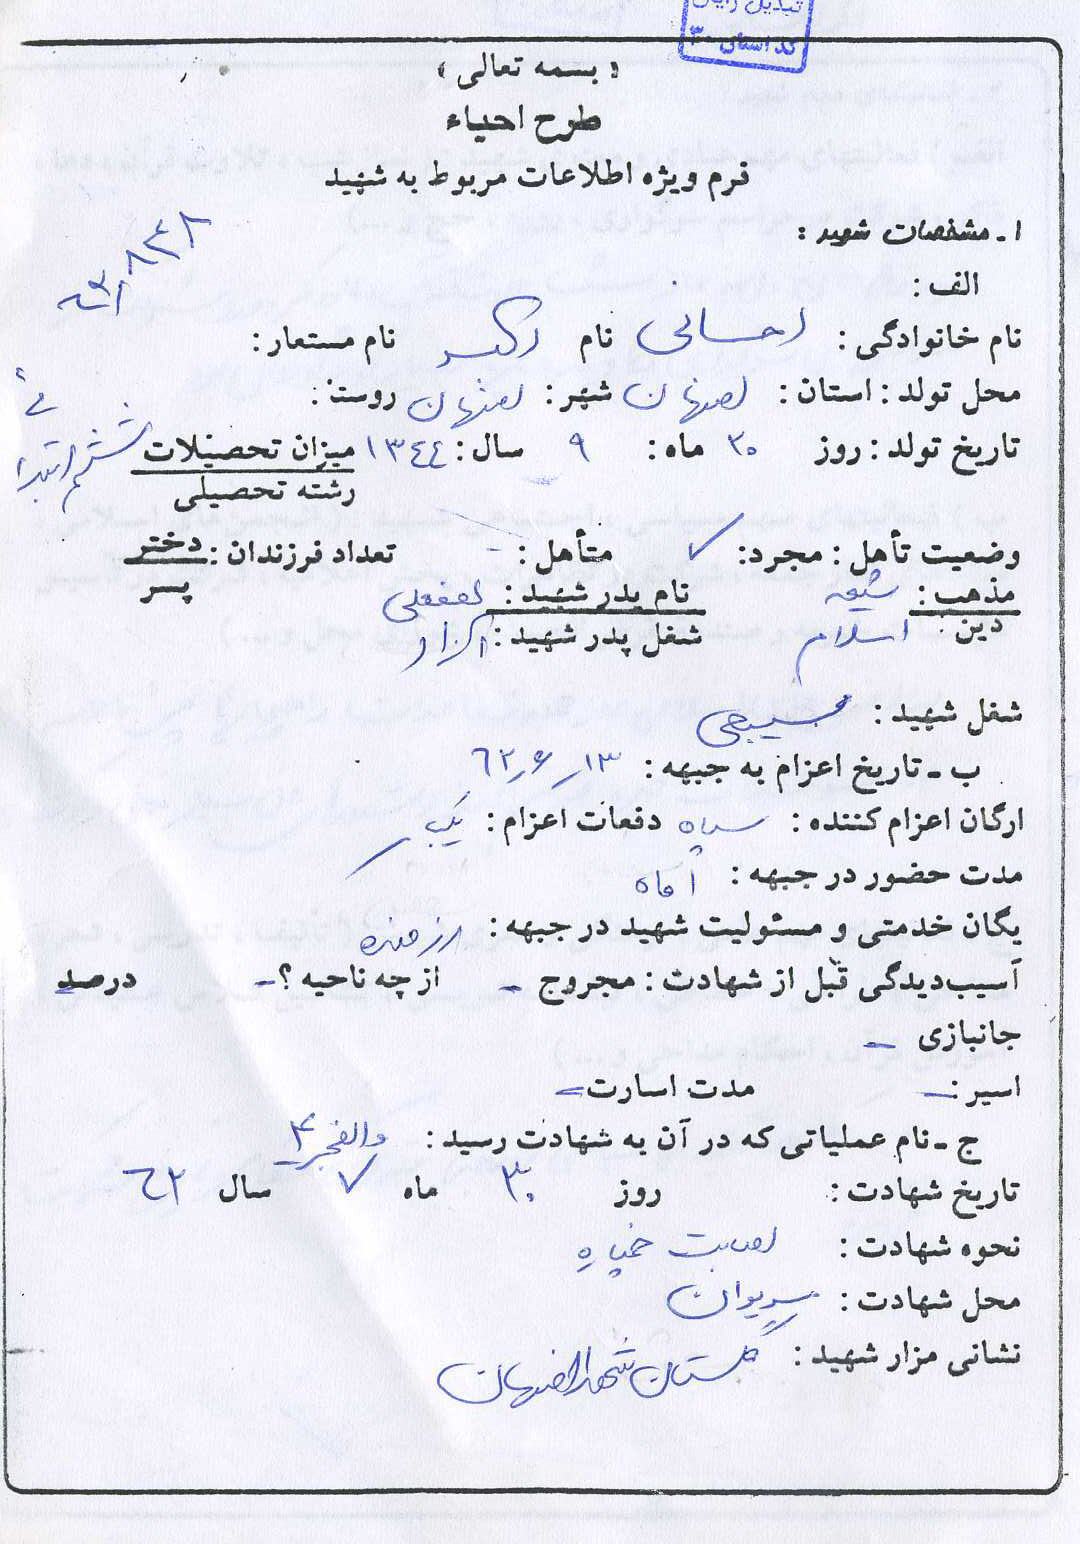 تبدیل رایان
کد استان ۳۰
« بسمه تعالی »
طرح احیاء
فرم ویژه اطلاعات مربوط به شهید
۱ـ مشخصات شهید :
۸۶۴۲
الف :
نام خانوادگی : احسانی نام اکبر نام مستعار :
محل تولد : استان : اصفهان شهر : اصفهان روستا :
تاریخ تولد : روز ۲۰ ماه : ۹ سال : ۱۳۴۴ میزان تحصیلات ششم ابتدائی
رشته تحصیلی
وضعیت تأهل : مجرد : ✓ متأهل : - تعداد فرزندان : دختر
پسر
مذهب : شیعه نام پدر شهید :
دین اسلام شغل پدر شهید :
شغل شهید : بسیجی
ب ـ تاریخ اعزام به جبهه : ۱۳ـ۶ـ۶۲
ارگان اعزام کننده : سپاه دفعات اعزام : یک
مدت حضور در جبهه : ۱ ماه
یگان خدمتی و مسئولیت شهید در جبهه : رزمنده
آسب‌دیدگی قبل از شهادت : مجروح - از چه ناحیه ؟ - درصد
جانبازی -
اسیر : - مدت اسارت -
ج ـ نام عملیاتی که در آن به شهادت رسید : والفجر ۴
تاریخ شهادت : روز ۳۰ ماه ۷ سال ۶۲
نحوه شهادت : اصابت خمپاره
محل شهادت : مریوان
نشانی مزار شهید : گلستان شهدا اصفهان